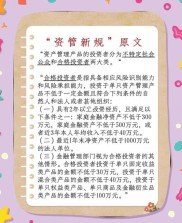 “资管新规”原文
“资产管理产品的投资者分为不特定社会
公众和合格投资者两大类。”
“合格投资者是指具备相应风险识别能力
和风险承担能力，投资于单只资产管理产
品不低于一定金额且符合下列条件的自
然人和法人或者其他组织：
（一）具有2年以上投资经历，且满足以
下条件之一：家庭金融净资产不低于300
万元，家庭金融资产不低于500万元，或
者近3年本人年均收入不低于40万元。
（二）最近1年末净资产不低于1000万元
的法人单位。
（三）金融管理部门视为合格投资者的其
他情形。合格投资者投资于单只固定收益
类产品的金额不低于30万元，投资于单只
混合类产品的金额不低于40万元，投资于
单只权益类产品、单只商品及金融衍生品
类产品的金额不低于100万元。”